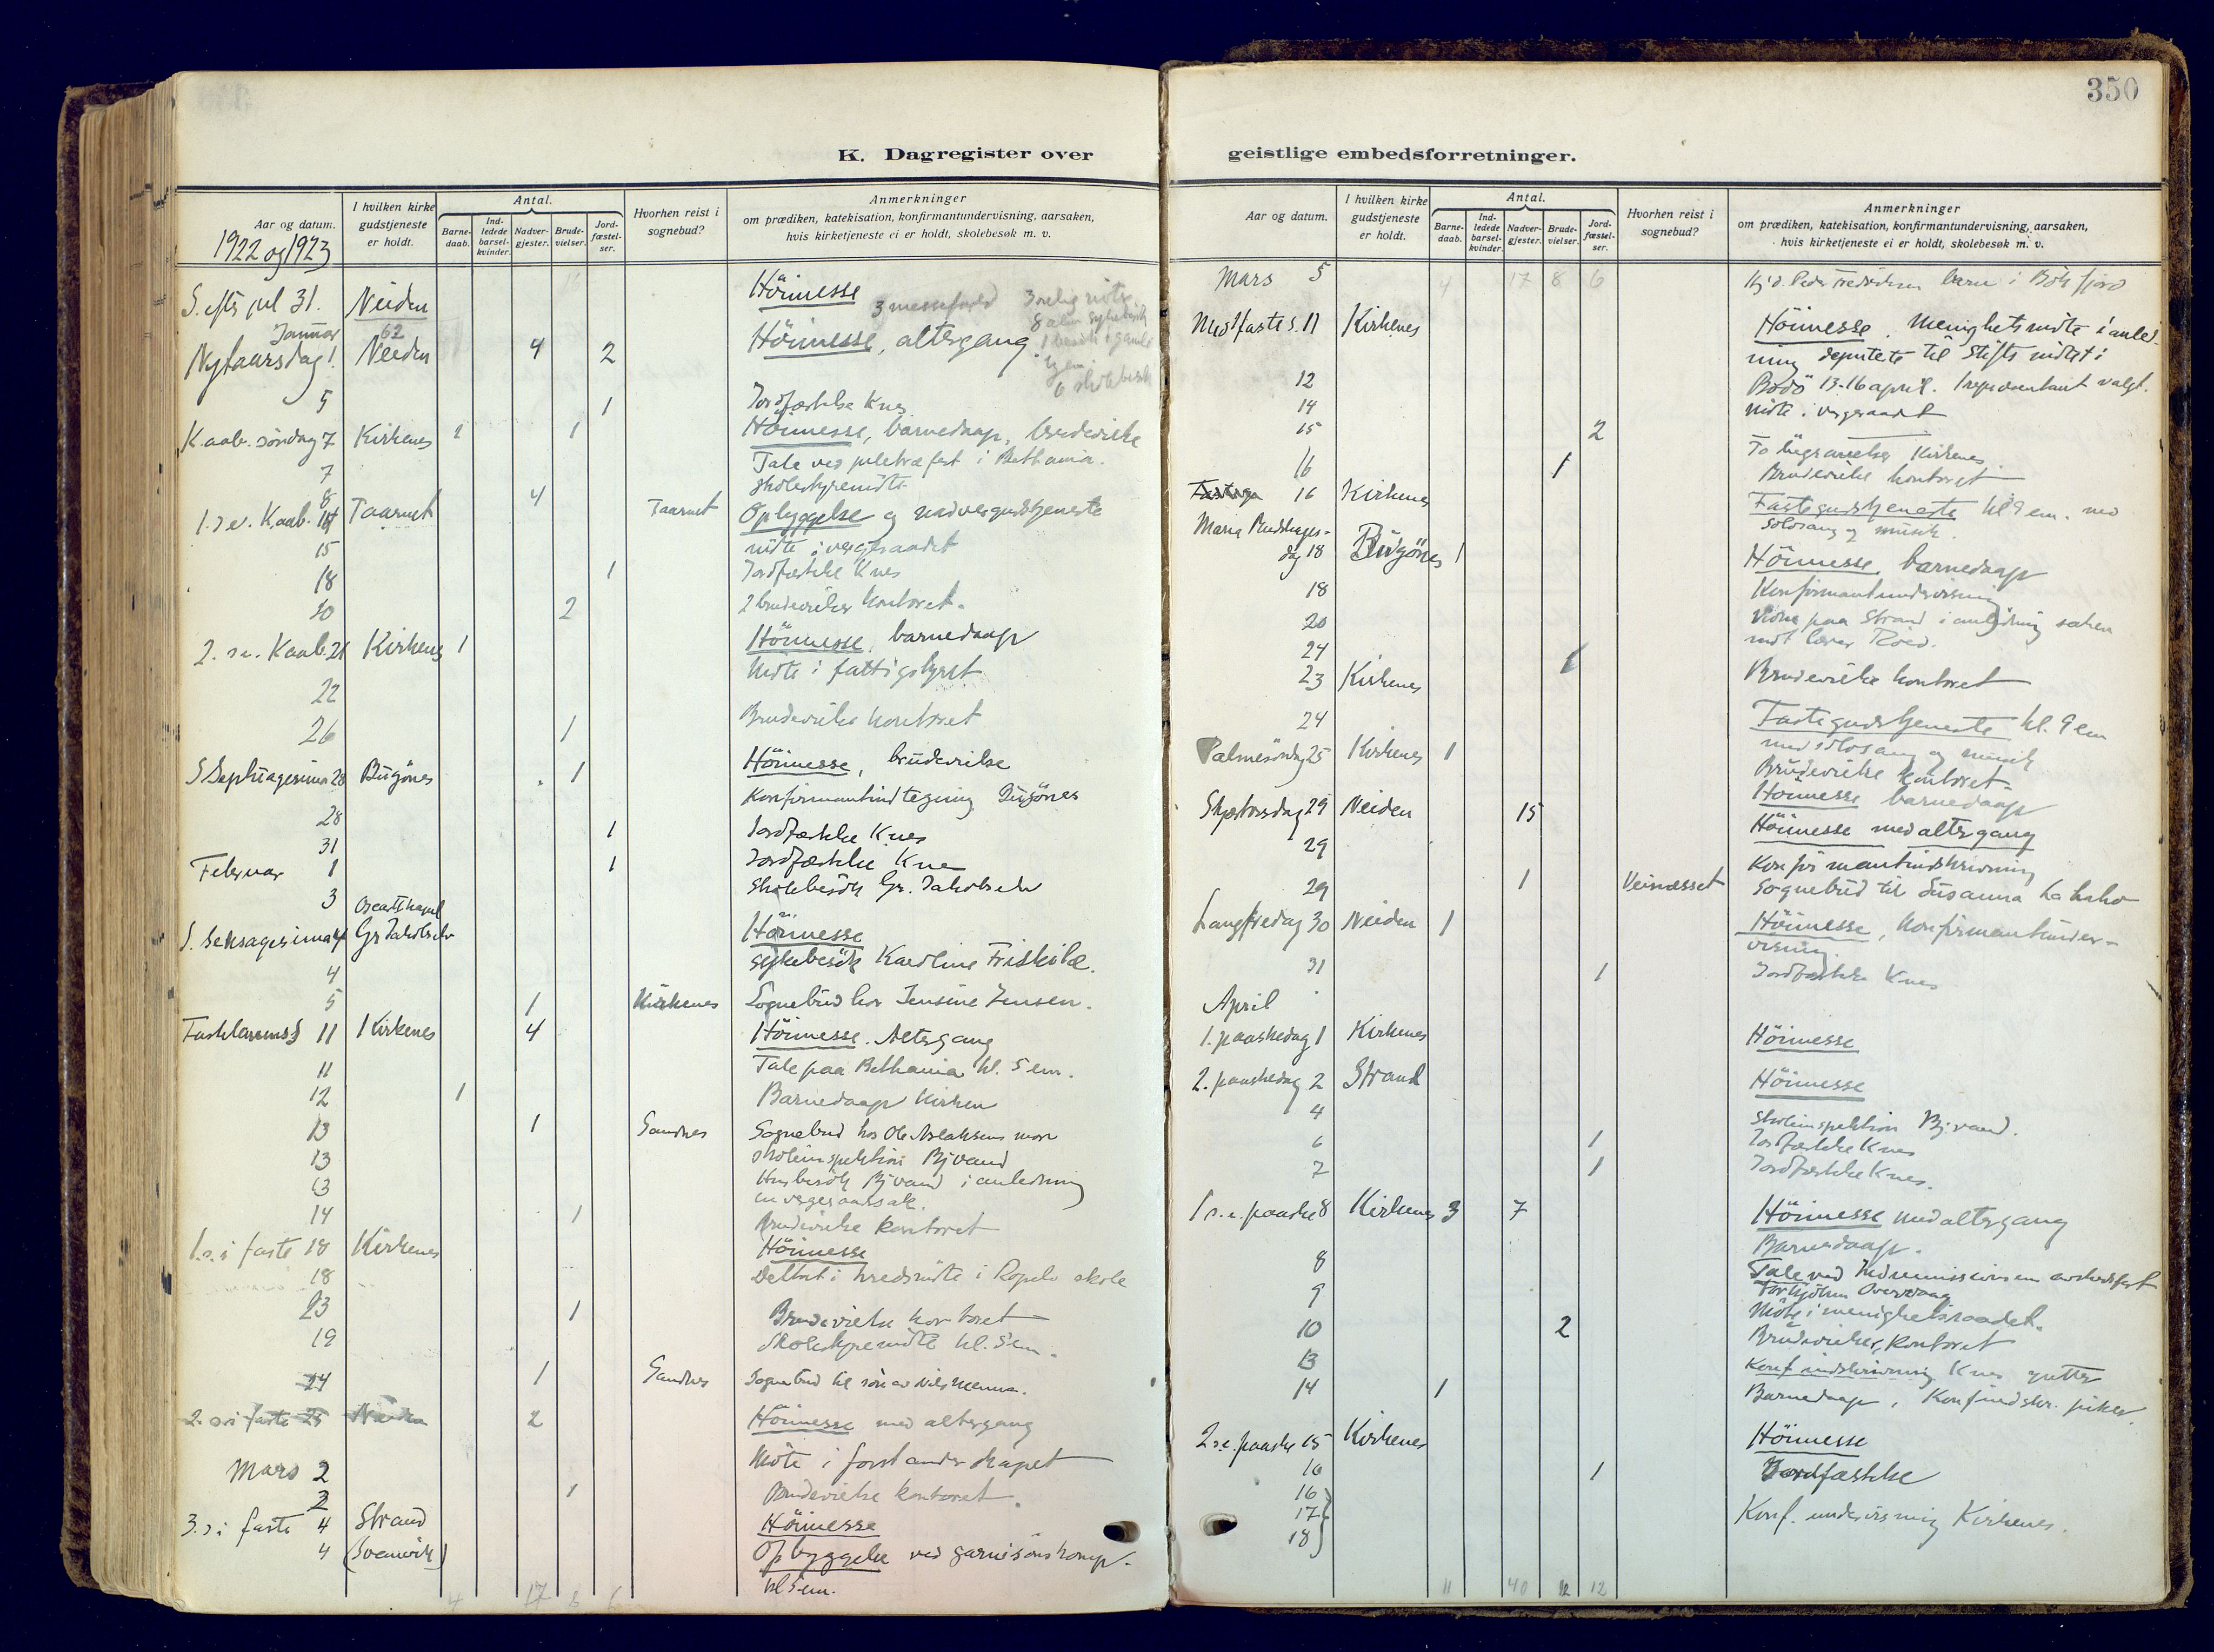 350
K. Dagregister over
geistlige embedsforretninger.
Aar og datum.
I hvilken kirke gudstjeneste er holdt.
Antal.
Barne-daab.
Ind-ledede barsel-kvinder.
Nadver-gjester.
Brude-vielser.
Jord-fæstel-ser.
Hvorhen reist i sognebud?
Anmerkninger
om prædiken, katekisation, konfirmantundervisning, aarsaken,
hvis kirketjeneste ei er holdt, skolebesøk m. v.
1922 og 1923
S. efter jul 31. Neiden Höimesse
Januar 62
Nytaarsdag 1. Neiden 4 2 Höimesse, altergang
5 1 Jordfæstelse Knes
K. aab. søndag 7 Kirkenes 1 1 Höimesse, barnedaap, brudevielse
7 Tale ved juletræfest i Bethania.
8 Skolestyremöte
1. s e. K.aab. 14 Taarnet 4 Taarnet Opbyggelse og nadvergudstjeneste
15 möte i vergeraadet
18 1 Jordfæstelse Knes
20 2 2 brudevielser kontoret.
2. s.e. K.aab. 21 Kirkenes 1 Höimesse, barnedaap
22 Möte i fattigstyret
26 1 Brudevielse kontoret
S Septuagesima 28 Bugönes 1 Höimesse, brudevielse
28 Konfirmantindtegning Bugönes
31 1 Jordfæstelse Knes
Februar 1 1 Jordfæstelse Knes
3 Skolebesök Gr. Jakobselv
Oscar II kapel
S. Seksagesima 4 Gr Jakobselv Höimesse
4 Sykebesök Karoline Friskilæ.
5 1 Kirkenes Sognebud hos Jensine Jensen.
Fastelavenss 11 Kirkenes 4 Höimesse. Altergang
11 Tale paa Bethania kl. 5 em.
12 1 Barnedaap kirken
13 1 Sandnes Sognebud hos Ole Aslaksens mor
13 Skoleinspektion Bjvand
13 Husbesök Bjvand i anledning
en vergeraadssak.
14 1 Brudevielse kontoret
1. s. i faste 18 Kirkenes Höimesse
18 Deltat i kredsmöte i Ropelv skole
23 1 Brudevielse kontoret
19 Skolestyremöte kl. 5 em.
24 1 Sandnes Sognebud til
2. s i faste 25 Neiden 2 Höimesse med altergang
Mars 2 Möte i forstanderskapet
2 1 Brudevielse kontoret.
3. s i faste 4 Strand Höimesse
4 (Svanvik) Opbyggelse ved garnisonskomp.
kl 5 em.
4 17 8 6
Mars 5 4 17 8 6
Midtfaste s. 11 Kirkenes Höimesse. Menighetsmöte i anled-
ning deputerte til Stiftsmötet i
Bodö 13-16 april. 1 repræsentant valgt.
12 Möte i vergeraadet
14
15 2 To begravelser Kirkenes.
16 1 Brudevielse kontoret
16 Kirkenes Fastegudstjeneste kl 9 em. med
Solosang og musik.
Maria Budskapes-
dag 18 Bugönes 1 Höimesse, barnedaap
18 Konfirmantundervisning
20 paa Strand i anledning saken
mot lærer
24 1 Brudevielse kontoret
23 Kirkenes Fastegudstjeneste kl. 9 em
med solosang og musik
24 Brudevielse kontoret.
Palmesöndag 25 Kirkenes 1 Höimesse barnedaap
Skjærtorsdag 29 Neiden 15 Höimesse med altergang
29 Konfirmantindskrivning
29 1 Veinesset Sognebud til Susanna
Langfredag 30 Neiden 1 Höimesse, Konfirmantunder-
visning.
31 1 Jordfæstelse Knes
April
1. paaskedag 1 Kirkenes Höimesse
2. paaskedag 2 Strand Höimesse
4 Skoleinspektion Bjvand.
6 1 Jordfæstelse Knes
7 1 Jordfæstelse Knes.
1 s. e. paaske 8 Kirkenes 3 7 Höimesse med altergang
Barnedaap.
8 Tale ved Indremissionens
9 Möte i menighetsraadet.
10 2 Brudevielser, kontoret
13 Konf indskrivning Knes gutter
14 1 Barnedaap, Konf indskr. piker.
2 s.e. paaske 15 Kirkenes Höimesse
16 1 Jordfæstelse
16
17
18 Konf. undervisning Kirkenes.
11 40 12 12